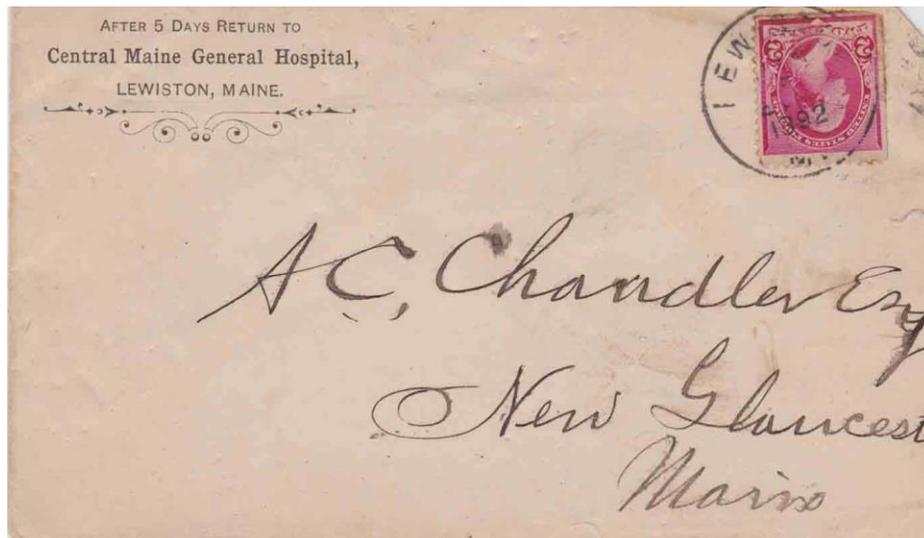 AFTER 5 DAYS RETURN TO
Central Maine General Hospital,
LEWISTON, MAINE.
1892
A C, Chandler Esq
New Gloucest
Maine